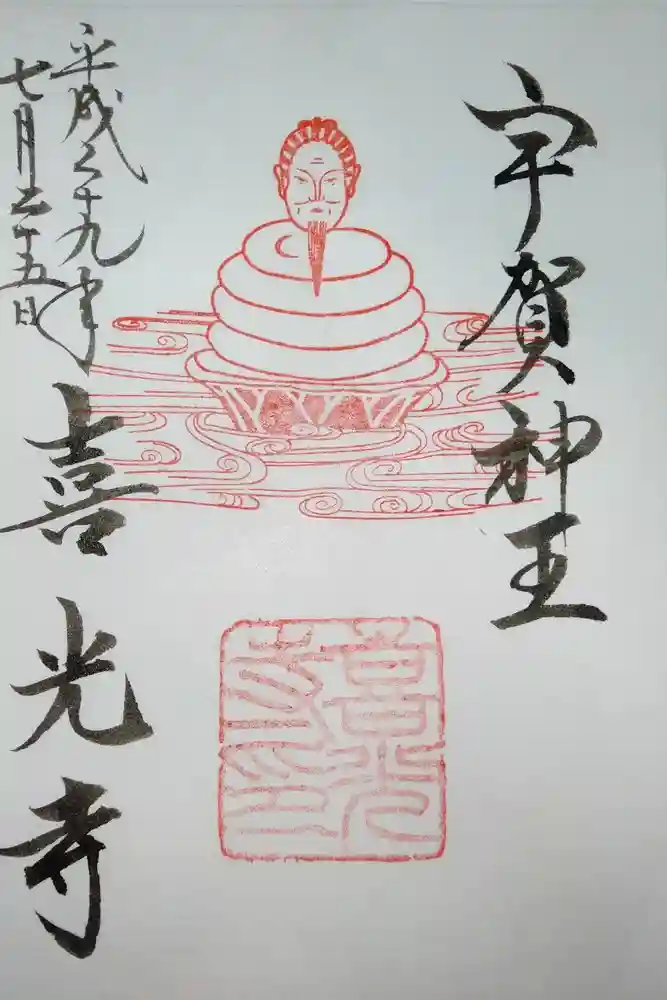 宇賀神王
平成二十九年
七月二十五日
喜光寺
喜光
寺印